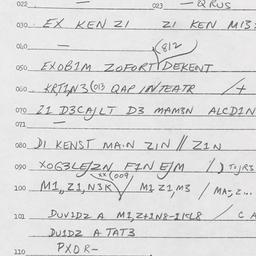 022 — 023 — QRUS
030 EX KEN ZI ZI KEN MI3
040 — 812
050 EXOBIM ZOFORT DEKENT
060 KRTJN3 (013 QAP INTEATR /+
070 21 D3CAJLT D3 MAM3N ALCDIN
071 —
080 DI KENST MAIN ZIN // ZIN
090 XOG3LEJZN FIN EJM /
100 M1,,Z1,N3K xx (009) / M1 Z1,M3 / MA
101 DUVIDZ A M1,Z+1N8-
DUIDZ A TAT3
110 PXOR-